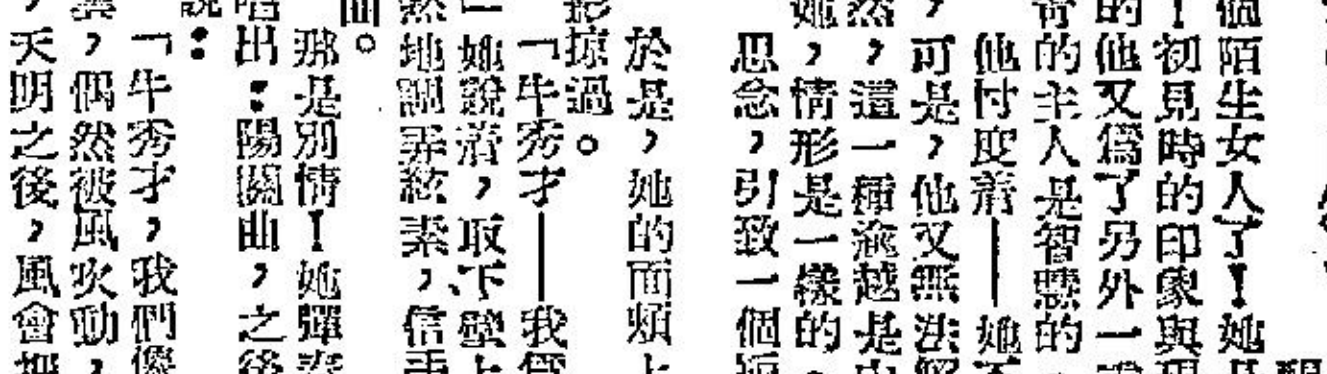 個陌生女人了！她
！初見時的印象與
的他又爲了另外一
的主人是智慧的
他忖度着——她
，可是，他又無法
然，這一種渝越是
她，情形是一樣的
思念，引致一個
於是，她的面頰上
影掠過。
「牛秀才——我
一她說着，取下壁上
然地調弄絃素，信手
面。
那是別情！她彈奏
唱出：陽關曲，之後
說：
「牛秀才，我們
，偶然被風吹動，
，天明之後，風會把